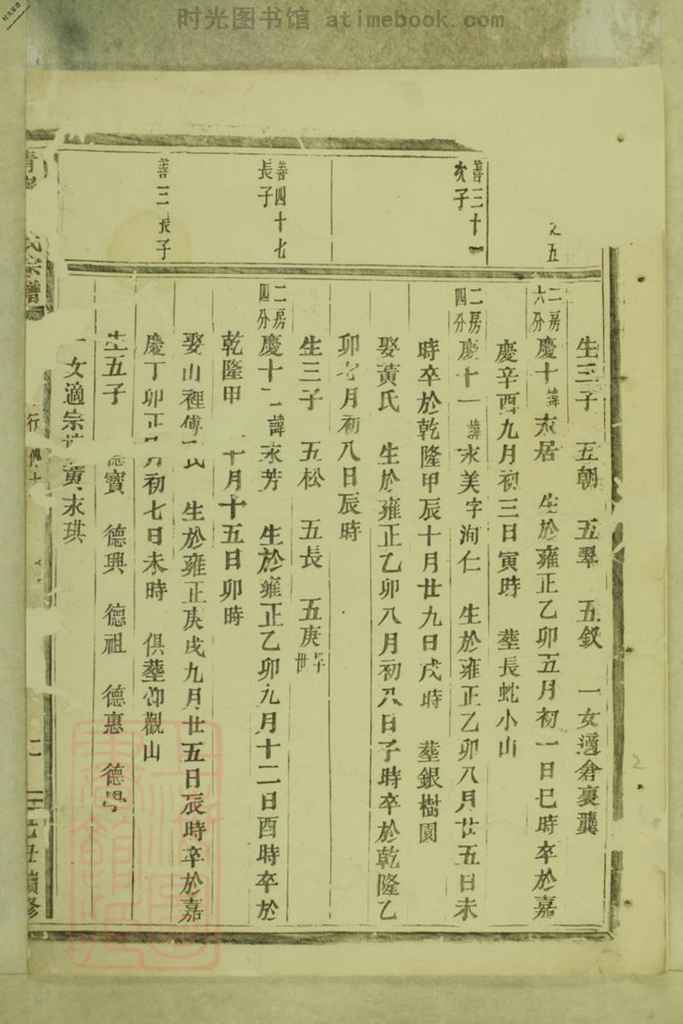 时光图书馆 atimebook.com
之五
生三子 五朝 五翠 五釵 一女適倉裏龔
二房六分 慶十 諱永居 生於雍正乙卯五月初一日巳時卒於嘉
慶辛酉九月初三日寅時 塟長虵小山
善三十一次子
二房四分 慶十一 諱永美字洵仁 生於雍正乙卯八月廿五日未
時卒於乾隆甲辰十月廿九日戌時 塟銀樹園
娶黃氏 生於雍正乙卯八月初八日子時卒於乾隆乙
卯七月初八日辰時
生三子 五松 五長 五庚早世
善四十七長子
二房四分 慶十二 諱永芳 生於雍正乙卯九月十二日酉時卒於
乾隆甲 十月十五日卯時
善三長子
娶山裡傅氏 生於雍正庚戌九月廿五日辰時卒於嘉
慶丁卯正月初七日未時 俱塟仰觀山
生五子 德寶 德興 德祖 德惠 德學
一女適宗 黃末琪
青 氏宗譜 行 二 乙丑續修